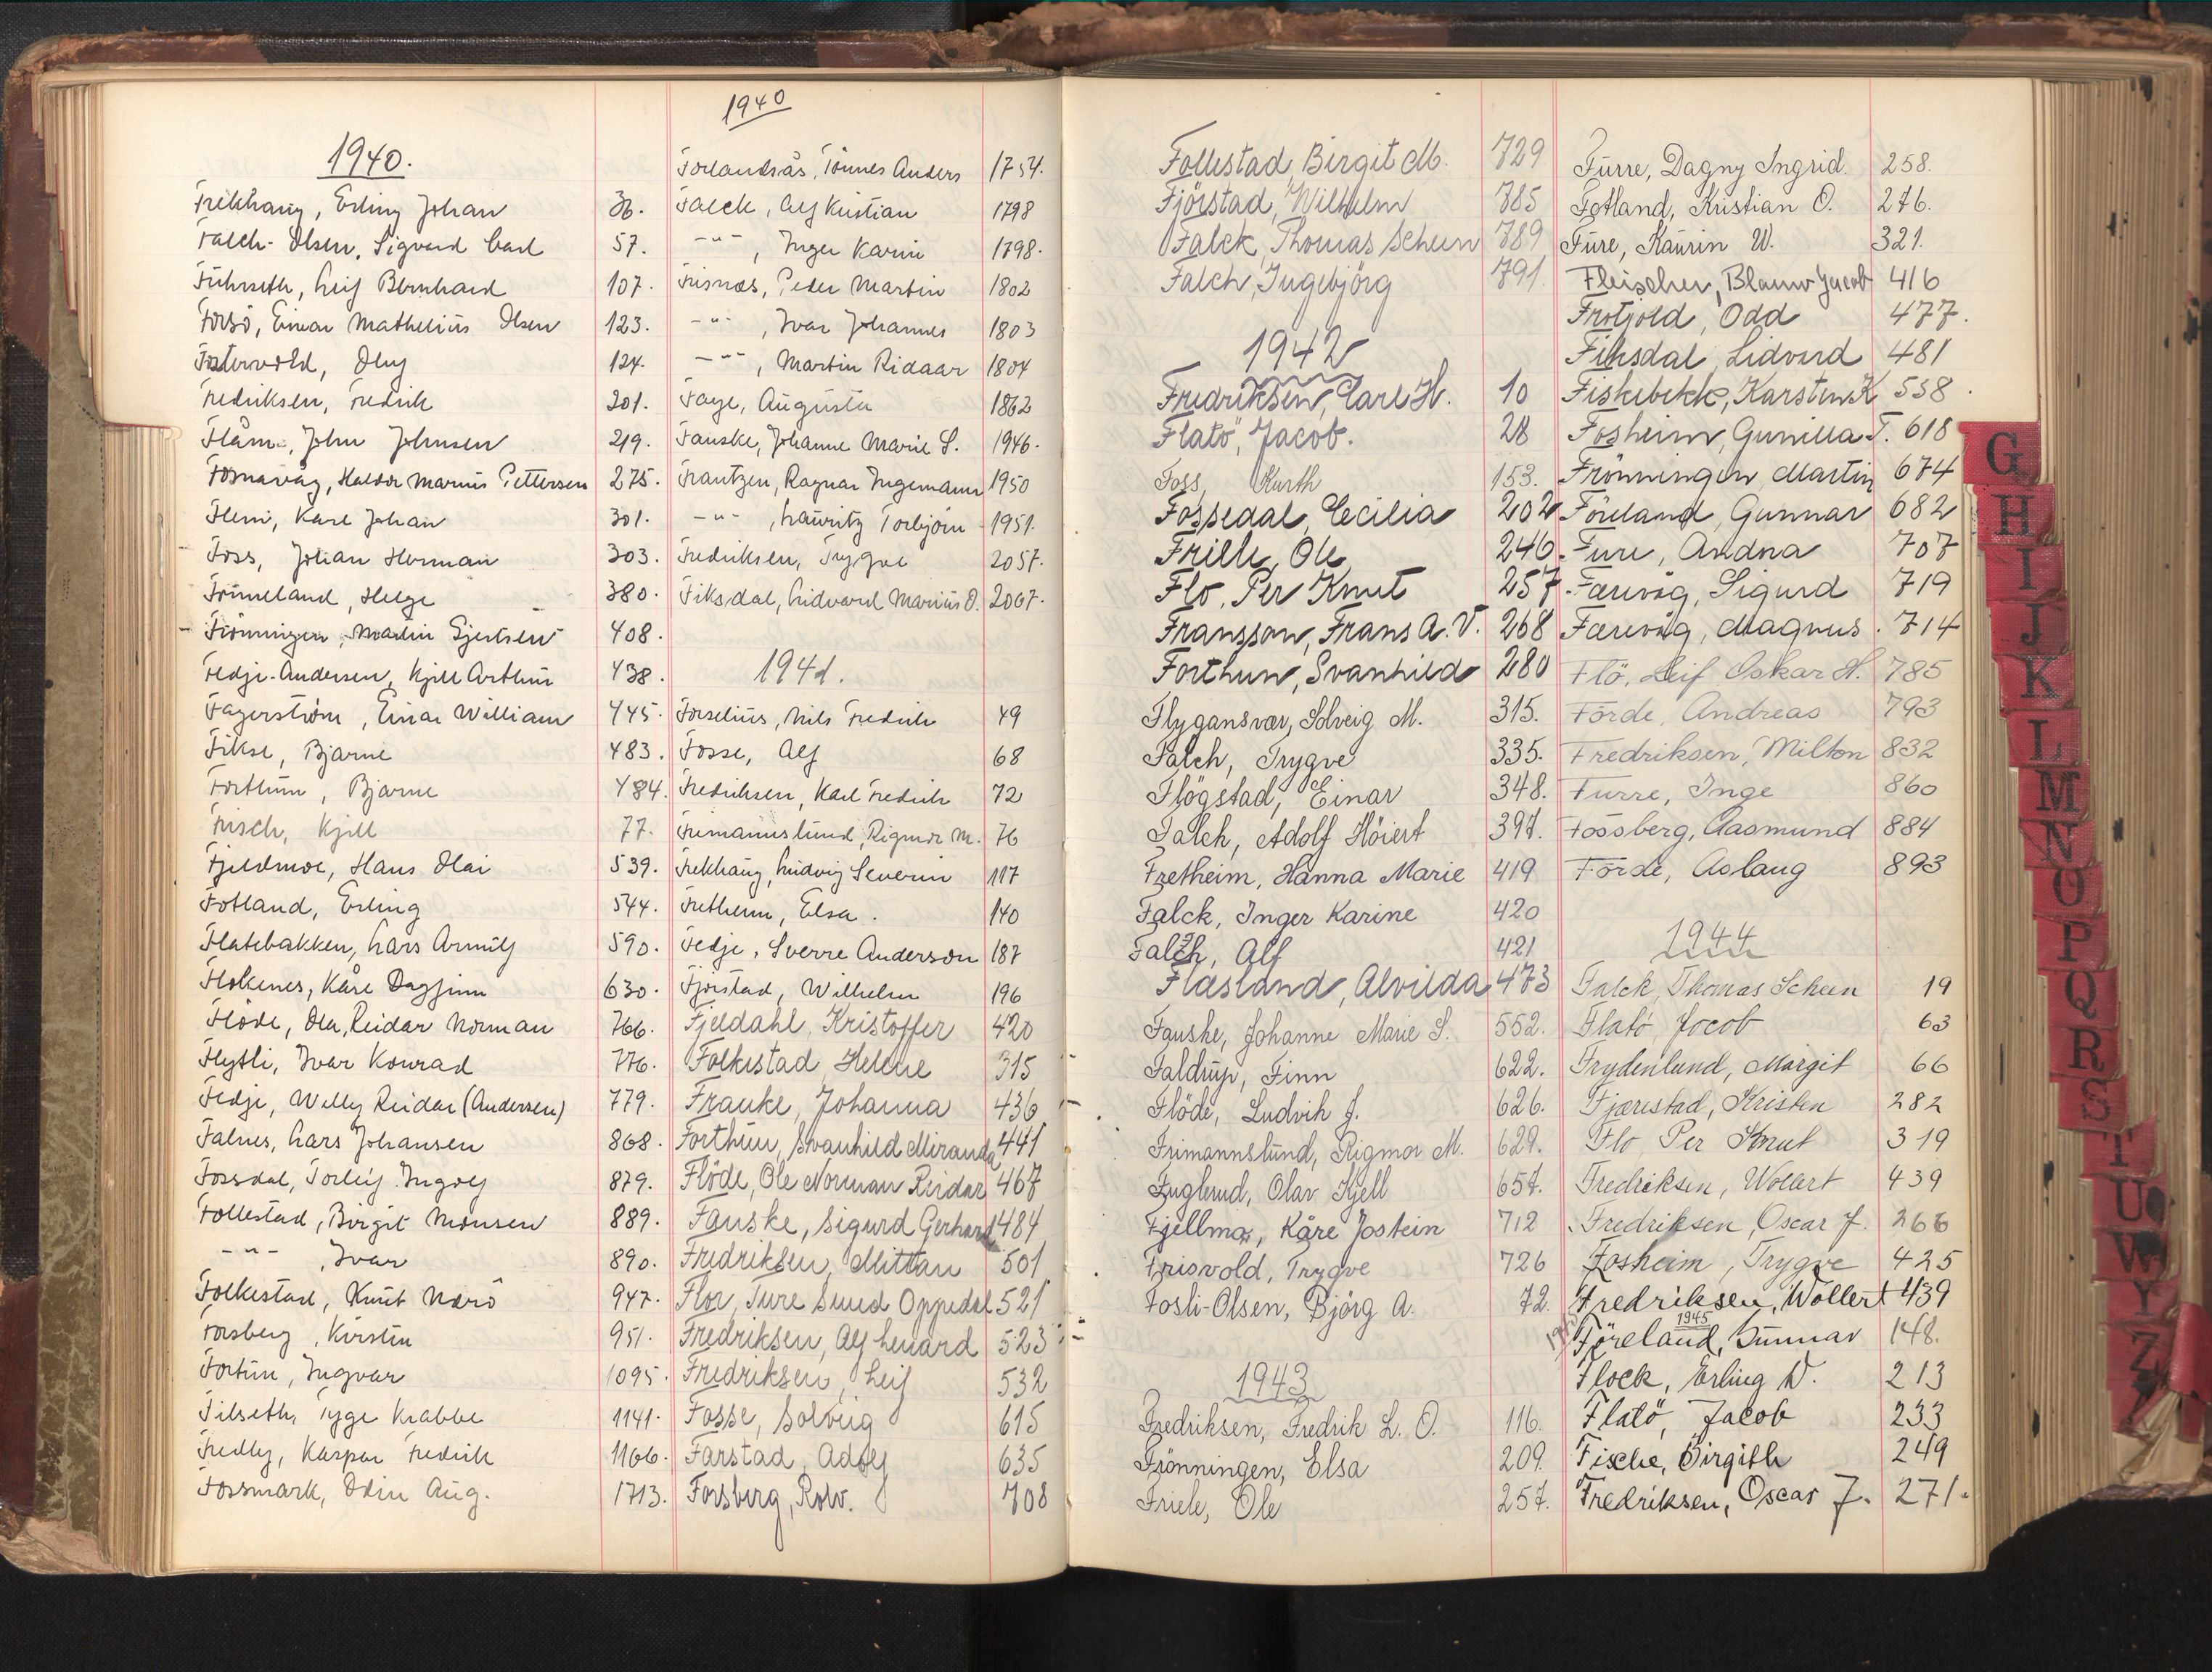 1940.
Frekhaug, Erling Johan 36.
Falch-Olsen, Sigvard Carl 57.
Führseth, Leif Bernhard 107.
Forsö, Einar Mathelius Olsen 123.
Fostervold, Oluf 124.
Fredriksen, Fredrik 201.
Flåm, John Johnsen 219.
Fosnavåg, Haldor Marius Pettersen 275.
Flem, Karl Johan 301.
Foss, Johan Herman 303.
Frömeland, Helge 380.
Frönningen, Martin Gjertsen 408.
Fedje-Andersen, Kjell Arthur 438.
Fagerström, Einar William 445.
Fikse, Bjarne 483.
Forthun, Bjarne 484.
Frisch, Kjell 77.
Fjeldmoe, Hans Olai 539.
Fotland, Erling 544.
Flatebakken, Lars Arnulf 590.
Flokenes, Kåre Dagfinn 630.
Flöde, Ola Reidar Norman 766.
Flytli, Ivar Konrad 776.
Fedje, Willy Reidar (Andersen) 779.
Falnes, Lars Johansen 868.
Fossdal, Torleif Ingolf 879.
Follestad, Birgit Monsen 889.
-"- , Ivar 890.
Folkestad, Knut Nærö 947.
Forsberg, Kirsten 951.
Fortun, Ingvar 1095.
Filseth, Tyge Krabbe 1141.
Fredly, Kaspar Fredrik 1166.
Fossmark, Odin Aug. 1713.
1940
Forlandsås, Tönnes Anders 1754.
Falck, Alf Kristian 1798
-"- , Inger Karin 1798.
Frisnes, Peder Martin 1802
-"- , Ivar Johannes 1803
-"- , Martin Ridaar 1804
Faye, Augusta 1862
Fauske, Johanne Marie S. 1946.
Frantzen, Ragnar Ingemann 1950
-"- , Lauritz Torbjörn 1951.
Fredriksen, Trygve 2057.
Fiksdal, Lidvard Marius O. 2067.
1941.
Forselius, Nils Fredrik 49
Fosse, Alf 68
Fredriksen, Karl Fredrik 72
Frimannslund, Rigmor M. 76
Frekhaug, Ludvig Severin 117
Fretheim, Elsa. 140
Fedje, Sverre Anderson 187
Fjörstad, Wilhelm 196
Fjeldahl, Kristoffer 420
Folkestad, Helene 315
Franke, Johanna 436
Forthun, Svanhild Miranda 441
Flöde, Ole Norman Reidar 467
Fauske, Sigurd Gerhard 484
Fredriksen, Mittan 501
Flor, Ture Smed Oppedal 521
Fredriksen, Alf Lenard 523
Fredriksen, Leif 532
Fosse, Solveig 615
Farstad, Adolf 635
Forsberg, Rolv. 708
Follestad, Birgit M. 729
Fjörstad, Wilhelm 785
Falck, Thomas Scheen 789
Falch, Ingebjörg 791
1942
Fredriksen, Carl H. 10
Flatö, Jacob. 28
Foss, Kurth 153.
Fossedal, Cecilia 202
Friele, Ole 246.
Flo, Per Knut 257.
Fransson, Frans A. V. 268
Forthun, Svanhild 280
Flygansvær, Solveig M. 315.
Falch, Trygve 335.
Flögstad, Einar 348.
Falch, Adolf Höiert 397.
Fretheim, Hanna Marie 419
Falck, Inger Karine 420
Falch, Alf 421
Flæsland, Alvilda 473
Fauske, Johanne Marie S. 552.
Faldrup, Finn 622.
Flöde, Ludvik J. 626.
Frimannslund, Rigmor M. 629.
Fuglerud, Olav Kjell 657.
Fjellmo, Kåre Jostein 712
Frisvold, Trygve 726
Fosli-Olsen, Bjørg A. 72.
1943
Fredriksen, Fredrik L. O. 116.
Frönningen, Elsa 209.
Friele, Ole 257.
Furre, Dagny Ingrid. 258.
Fotland, Kristian O. 276.
Fure, Kaurin W. 321.
Fleischer, Blauw Jacob 416
Frotjold, Odd 477.
Fiksdal, Lidvard 481
Fiskebekk, Karsten K 558.
Fosheim, Gunilla T. 618
Frönningen, Martin 674
Föreland, Gunnar 682
Fure, Andna 707
Færevåg, Sigurd 719
Færevåg, Magnus. 714
Flö, Leif Oskar H. 785
Förde, Andreas 793
Fredriksen, Milton 832
Furre, Inge 860
Fossberg, Aasmund 884
Förde, Aslaug 893
1944
Falck, Thomas Scheen 19
Flatö, Jocob 63
Frydenlund, Margit 66
Fjærestad, Kristen 282
Flo, Per Knut 319
Fredriksen, Wollert 439
Fredriksen, Oscar J. 266
Fosheim, Trygve 425
Fredriksen, Wollert 439
1945
Föreland, Gunnar 148.
Flock, Erling W. 213
Flatö, Jacob 233
Fische, Birgith 249
Fredriksen, Oscar J. 271.
G
H
I
J
K
L
M
N
O
P
Q
R
S
T
U
W
Y
Z